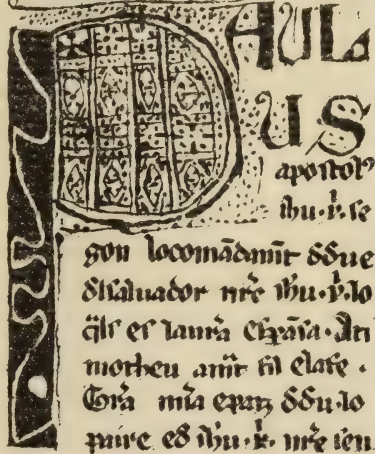 PAUL
US
apostol⁹
ihu · x̄ · se
gon lo comādam̄t d̄ d̄ue
d̄l saluador nr̄e ihu · x̄ · lo
q̄ls es la nr̄a esp̄āsa · A ti
motheu am̄t fil e la fe ·
Gr̄a m̄ia e patz d̄ d̄u · lo
paire e d̄ ihu · x̄ · nr̄e sen